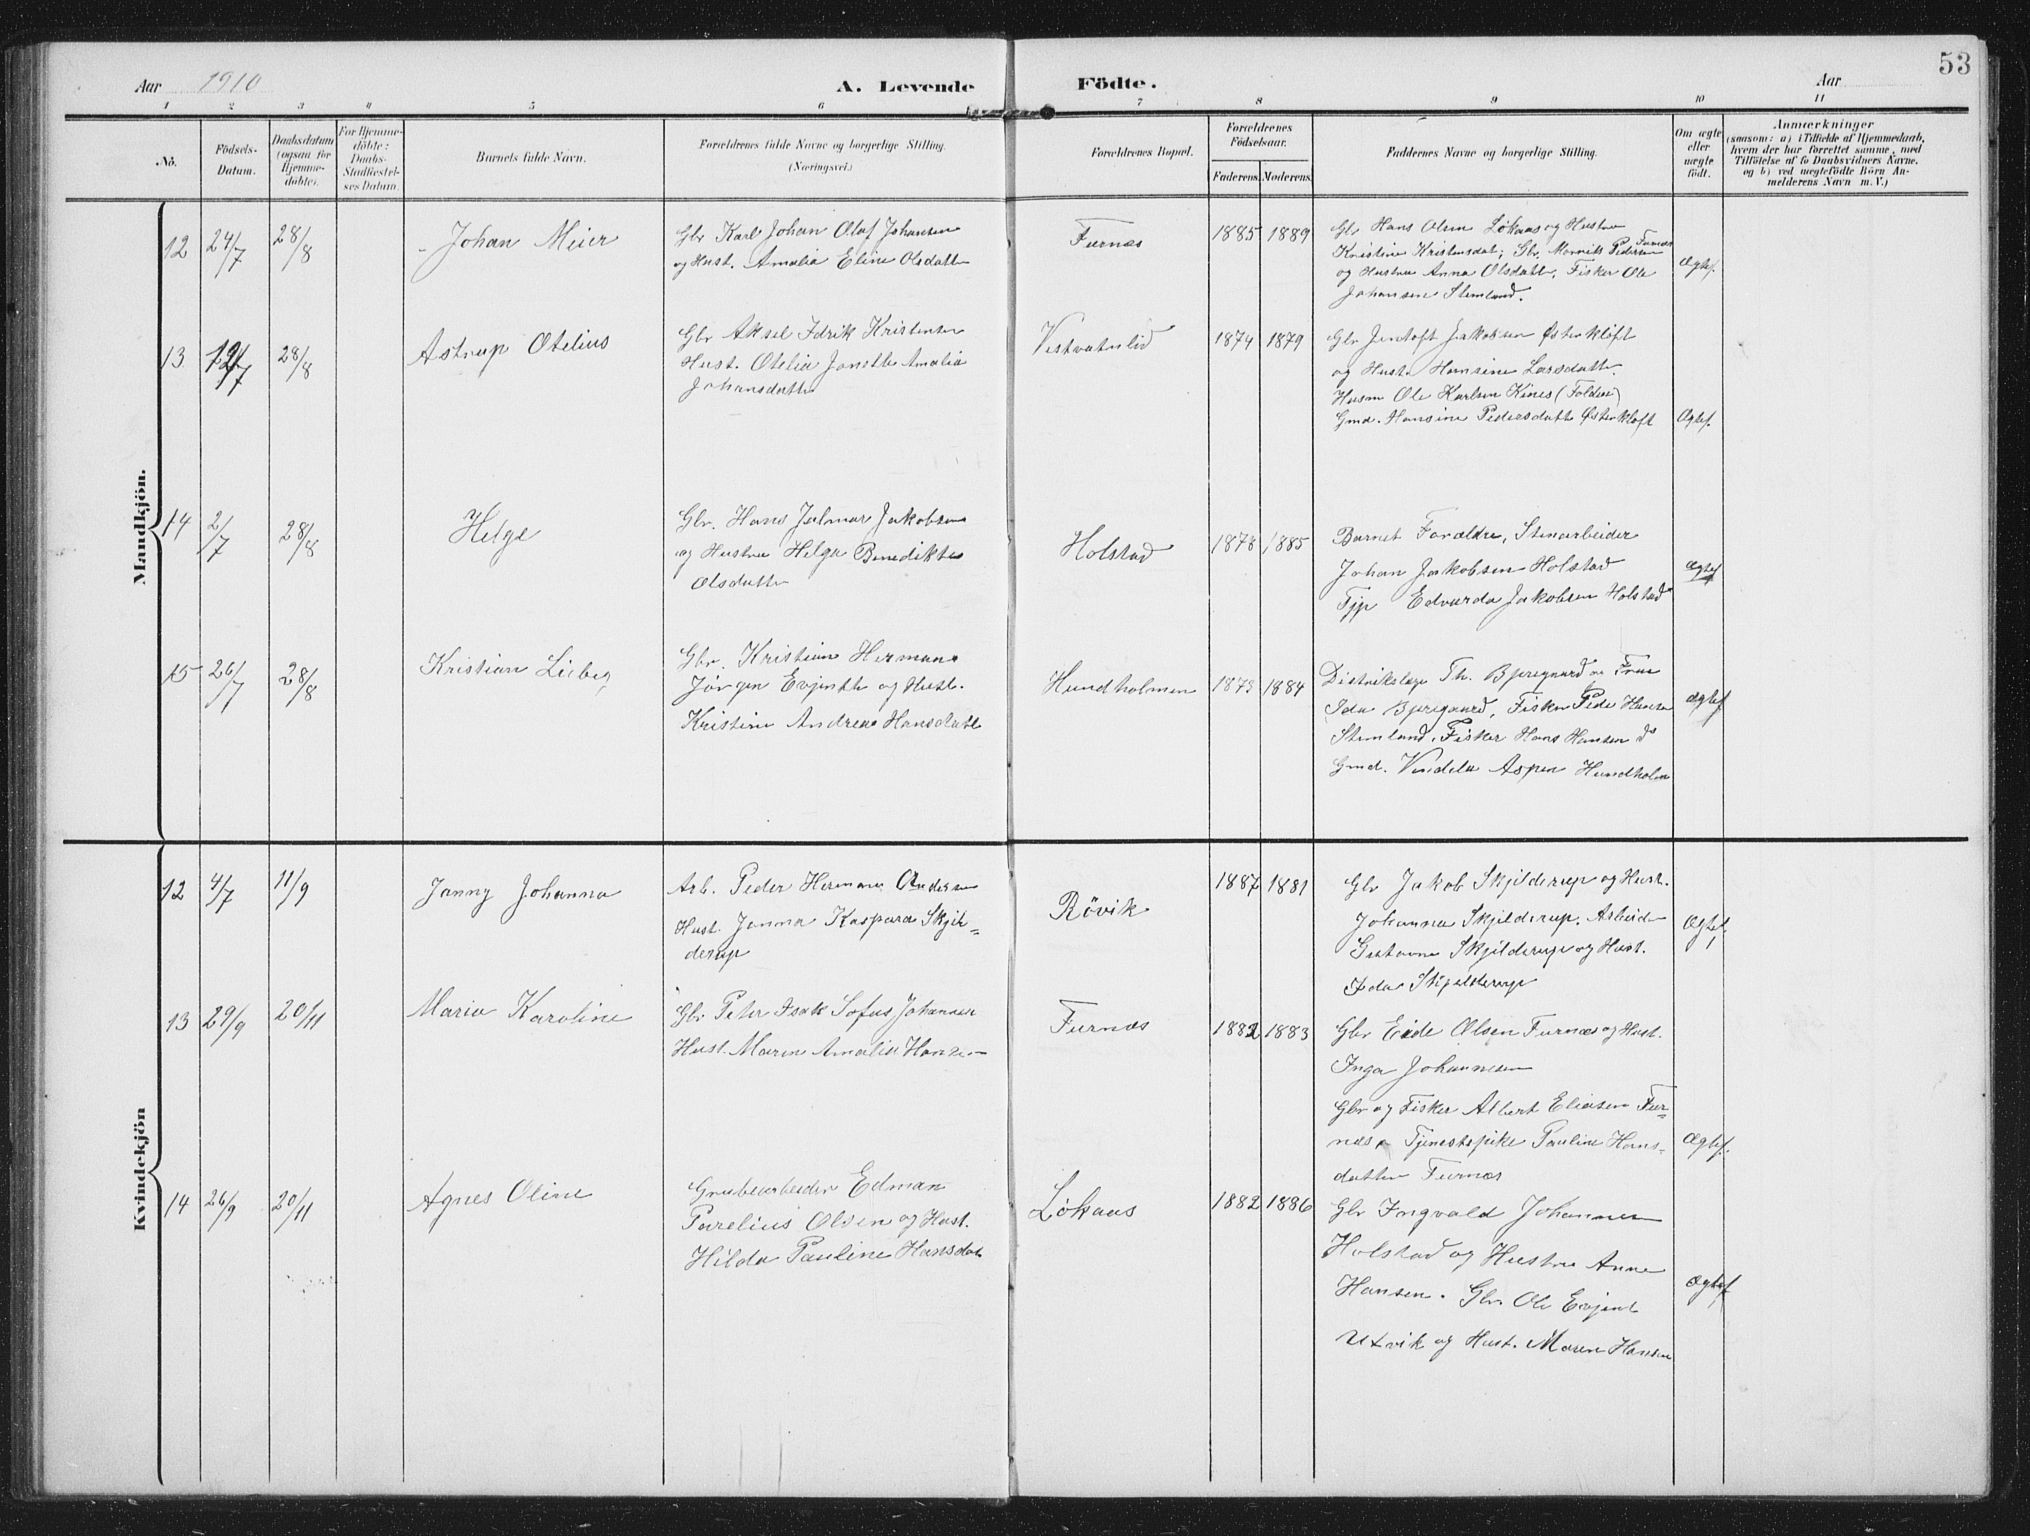 53
Aar 1910 A. Levende Födte. Aar
1 2 3 4 5 6 7 8 9 10 11
No.
Födsels-Datum.
Daabsdatum (ogsaa for Hjemme-döbte).
For Hjemme-döbte: Daabs-Stadfæstel-ses Datum.
Barnets fulde Navn.
Forældrenes fulde Navne og borgerlige Stilling. (Næringsvei.)
Forældrenes Bopæl.
Forældrenes Födselsaar.
Faderens. Moderens.
Faddernes Navne og borgerlige Stilling.
Om ægte eller uægte födt.
Anmærkninger
(saasom: a) i Tilfælde af Hjemmedaab, hvem der har forrettet samme, med Tilföielse af to Daabsvidners Navne. og b) ved uægtefödte Börn An-melderens Navn m. V.)
Mandkjön.
12 24/7 28/8 Johan Meier
Gbr Karl Johan Olaf Johansen
og Hust. Amalia Eline Olsdatter
Furnæs 1885 1889
Gbr Hans Olsen Løkaas og Hustru
Kristine Kristensdat; Gbr. Pedersen Furnæs
og Hustru Anna Olsdatt, Fisker Ole
Johansen Stemland.
Ægtef.
13 28/8 Astrup Otelius
Gbr Aksel Fdrik Kristensen
Hust. Otelia Janette Amalia
Johansdatter
Vestvatnlid 1874 1879
Gbr Jentoft Jakobsen Østerkløft
og Hust. Hansine Larsdatter.
Husm Ole Karlsen Kines (Folden)
Gmd. Hansine Pedersdatt Østerkløft
Ægtef.
14 2/7 28/8 Helge
Gbr. Hans Jalmar Jakobsen
og Hustru Helga Benedikte
Olsdatter
Holstad 1878 1885
Barnets Forældre, Stenarbeider
Johan Jakobsen Holstad
Tjp Edvarda Jakobsen Holstad
Ægtef
15 26/7 28/8 Kristian Lieberg
Gbr. Kristian Hermann
Jørgen Evjenth og Hust.
Kristine Andrea Hansdatt
Hundholmen 1873 1884
Distriktslæge Th. Bjerregaard og Frue
Ida Bjerregaard, Fisker Peder Hansen
Stemland, Fisker Hans Hansen ds
Gmd. Vendela Aspen Hundholm
Ægtef
Kvindekjön
12 4/7 11/9 Janny Johanna
Arb. Peder Herman Andersen
Hust. Janna Kaspara Skjel-
derup
Rövik 1887 1881
Gbr Jakob Skjelderup og Hust.
Johanna Skjelderup. Arbeid
Gustav Skjelderup og Hust.
Ida Skjelderup
Ægtef
13 29/9 20/11 Maria Karoline
Gbr Peter Isak Sofus Johannes
Hust. Maren Amalia Hansen
Furnæs 1882 1883
Gbr Eide Olsen Furnæs og Hust.
Inga Johannesen
Gbr og Fisker Albert Eliasen Fur-
næs, Tjenestepike Pauline Hans-
datter Furnæs
Ægtef.
14 26/9 20/11 Agnes Oline
Grubearbeider Edman
Parelius Olsen og Hust.
Hilda Pauline Hansdat
Løkaas 1882 1886
Gbr Ingvald Johannes
Holstad og Hustru Anne
Hansen. Gbr. Ole Evjent
Utvik og Hust. Maren Hansen
Ægtef